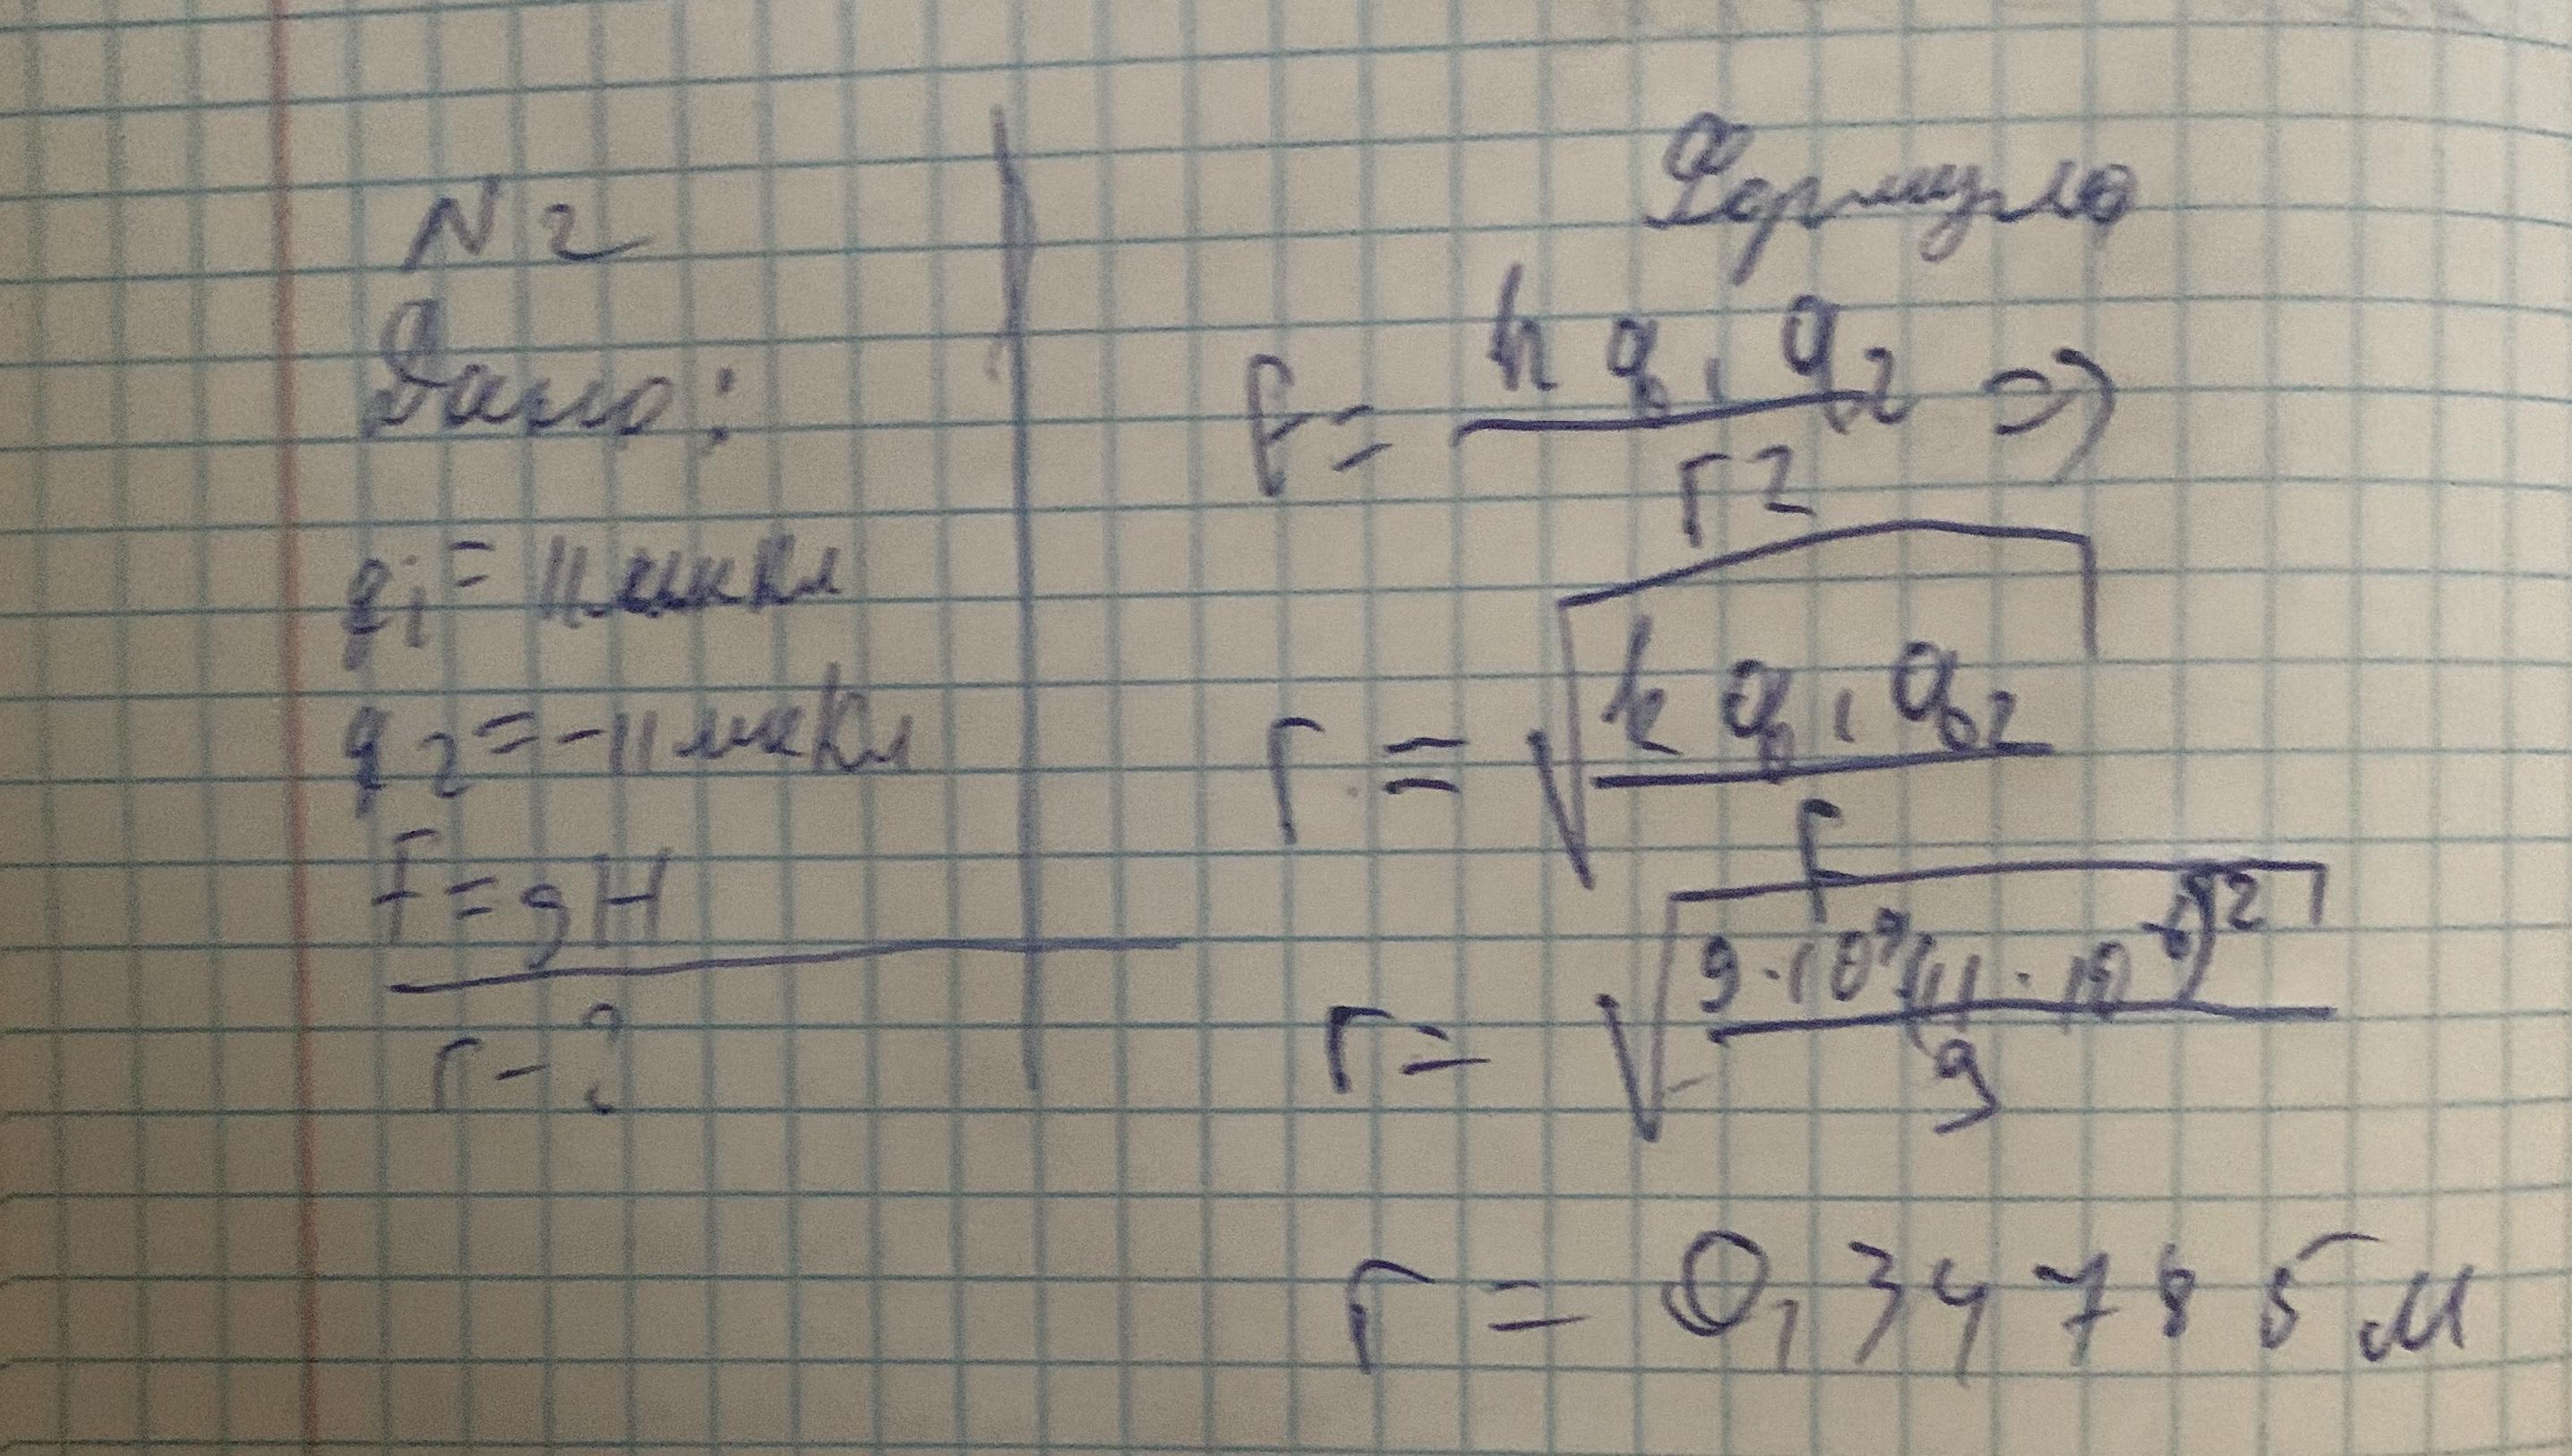 N 2
Дано:
q1 = 11 мкКл
q2 = -11 мкКл
F = 9 Н
r - ?
Формула
F = k q1 q2 / r2 =>
r = √(k q1 q2 / F)
r = √(9·10⁹(11·10⁻⁶)² / 9)
r = 0,34785 м